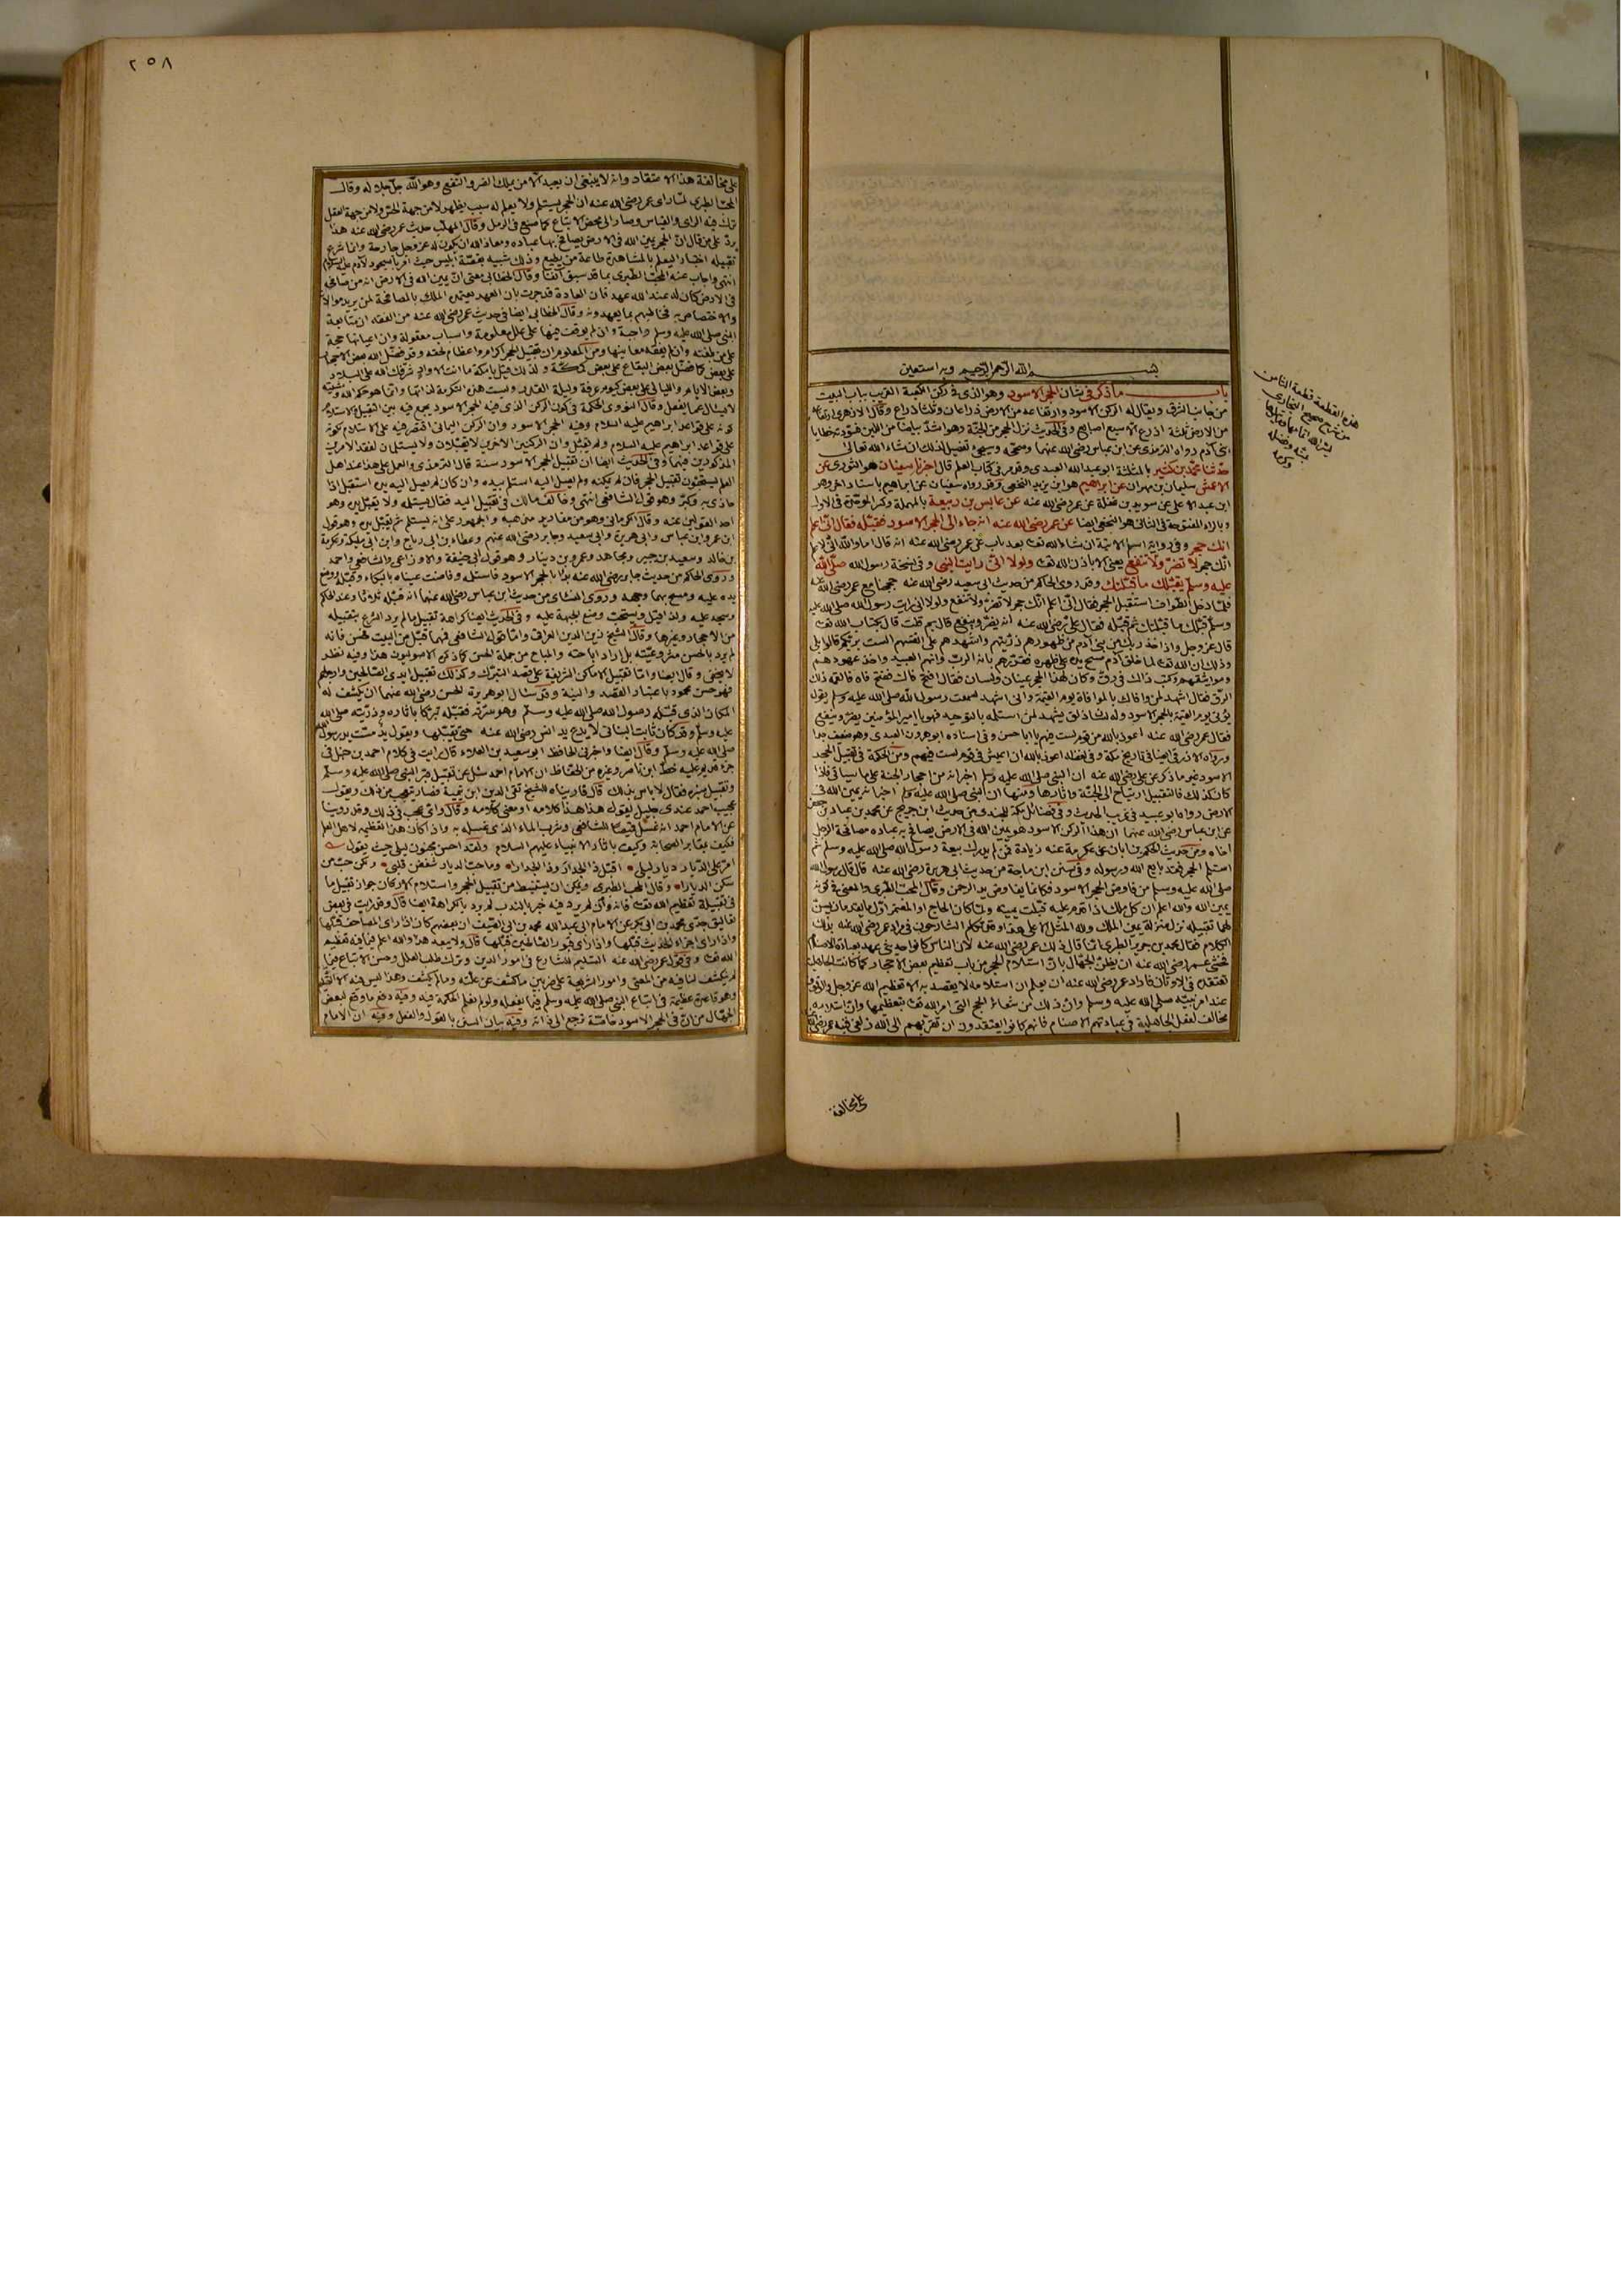 ١
بسم الله الرحمن الرحيم وبه استعين
باب ما ذكر في شان الحجر الاسود وهو الذي في ركن الكعبة القريب بباب البيت
من جانب الشرق ويقال له الركن الاسود وارتفاعه من الارض ذراعان وثلثا ذراع وقال الازهري ارتفاعه
من الارض ثلثة اذرع الا سبع اصابع وفي الحديث نزل الحجر من الجنة وهو اشد بياضا من اللبن فسودته خطايا
بني آدم رواه الترمذي عن ابن عباس رضي الله عنهما وصححه وسيجيء تفصيل لذلك ان شاء الله تعالى
حدثنا محمد بن كثير بالمثلثة ابو عبد الله العبدي وقد مر في كتاب العلم قال اخبرنا سفيان هو الثوري عن
الاعمش سليمان بن مهران عن ابراهيم هو ابن يزيد النخعي وقد رواه سفيان عن ابراهيم باسناد اخر وهو
ابن عبد الاعلى عن سويد بن غفلة عن عمر رضي الله عنه عن عابس بن ربيعة بالمهملة وكسر الموحدة في الاول
وبالراء المفتوحة في الثاني هو النخعي ايضا عن عمر رضي الله عنه انه جاء الى الحجر الاسود فقبله فقال اني اعلم
انك حجر وفي رواية اسلم الاتية ان شاء الله تعالى بعد باب عن عمر رضي الله عنه انه قال اما والله اني لاعلم
انك حجر لا تضر ولا تنفع يعني الا باذن الله تعالى ولولا اني رايت النبي وفي نسخة رسول الله صلى الله
عليه وسلم يقبلك ما قبلتك وقد روى الحاكم من حديث ابي سعيد رضي الله عنه حججنا مع عمر رضي الله عنه
فلما دخل الطواف استقبل الحجر فقال اني اعلم انك حجر لا تضر ولا تنفع ولولا اني رايت رسول الله صلى الله عليه
وسلم قبلك ما قبلتك ثم قبله فقال علي رضي الله عنه انه يضر وينفع قال بم قلت قال بكتاب الله تعالى
قال عز وجل واذ اخذ ربك من بني آدم من ظهورهم ذريتهم واشهدهم على انفسهم الست بربكم قالوا بلى
وذلك ان الله تعالى لما خلق آدم مسح يده على ظهره فقررهم بانه الرب وانهم العبيد واخذ عهودهم
ومواثيقهم وكتب ذلك في رق وكان لهذا الحجر عينان ولسان فقال افتح قال ففتح فاه فالقمه ذلك
الرق فقال اشهد لمن وافاك بالموافاة يوم القيمة واني اشهد لسمعت رسول الله صلى الله عليه وسلم يقول
يؤتى يوم القيمة بالحجر الاسود وله لسان ذلق يشهد لمن استلمه بالتوحيد فهو يا امير المؤمنين يضر وينفع
فقال عمر رضي الله عنه اعوذ بالله من قوم لست فيهم يا ابا حسن وفي اسناده ابو هرون العبدي وهو ضعيف جدا
ورواه الازرقي ايضا في تاريخ مكة وفي لفظه اعوذ بالله ان اعيش في قوم لست فيهم ومن الحكمة في تقبيل الحجر
الاسود غير ما ذكر عن علي رضي الله عنه ان النبي صلى الله عليه وسلم اخبر انه من احجار الجنة على ما سياتي فاذا
كان كذلك فالتقبيل ارتياح الى الجنة واثارها ومنها ان النبي صلى الله عليه وسلم اخبر انه يمين الله في
الارض رواه ابو عبيد في غريب الحديث وفي فضائل مكة للجندي من حديث ابن جريج عن محمد بن عباد بن جعفر
عن ابن عباس رضي الله عنهما ان هذا الركن الاسود هو يمين الله في الارض يصافح به عباده مصافحة الرجل
اخاه ومن حديث الحكم بن ابان عن عكرمة عنه زيادة فمن لم يدرك بيعة رسول الله صلى الله عليه وسلم ثم
استلم الحجر فقد بايع الله ورسوله وفي سنن ابن ماجة من حديث ابي هريرة رضي الله عنه قال قال رسول الله
صلى الله عليه وسلم من فاوض الحجر الاسود فكانما يفاوض يد الرحمن وقال المحب الطبري والمعنى في كونه
يمين الله والله اعلم ان كل ملك اذا قدم عليه قبلت يمينه ولما كان الحاج او المعتمر اول ما يقدمان يسن
لهما تقبيله نزل منزلة يمين الملك ولله المثل الاعلى وقد تكلم الشارحون في مراد عمر رضي الله عنه بذلك
الكلام فقال محمد بن جرير الطبري انما قال ذلك عمر رضي الله عنه لان الناس كانوا حديثي عهد بعبادة الاصنام
فخشي عمر رضي الله عنه ان يظن الجهال بان استلام الحجر من باب تعظيم بعض الاحجار كما كانت الجاهلية
تعتقده في الاوثان فاراد عمر رضي الله عنه ان يعلم ان استلامه لا يقصد به الا تعظيم الله عز وجل والوقوف
عند امر نبيه صلى الله عليه وسلم وان ذلك من شعائر الحج التي امر الله تعالى بتعظيمها وان استلامه
مخالف لفعل الجاهلية في عبادتهم الاصنام فانهم كانوا يعتقدون ان تقربهم الى الله زلفى فنبه عمر رضي الله عنه
على مخالفة
هذه القطعة قطعة الثامن
من شرح صحيح البخاري
يسر الله اتمامها وقبلها
بمنه وفضله
وكرمه
٢٥٨
على مخالفة هذا الاعتقاد وانه لا ينبغي ان يعبد الا من يملك الضر والنفع وهو الله جل جلاله وقال
المحب الطبري لما راى عمر رضي الله عنه ان الحجر يستلم ولا يعلم له سبب يظهر لا من جهة الحس ولا من جهة العقل
ترك فيه الراي والقياس وصار الى محض الاتباع كما صنع في الرمل وقال المهلب حديث عمر رضي الله عنه هذا
يرد على من قال ان الحجر يمين الله في الارض يصافح بها عباده ومعاذ الله ان يكون له عز وجل جارحة وانما شرع
تقبيله اختبارا ليعلم بالمشاهدة طاعة من يطيع وذلك شبيه بقصة ابليس حيث امر بالسجود لآدم عليه السلام
انتهى واجاب عنه المحب الطبري بما قد سبق آنفا وقال الخطابي معنى ان يمين الله في الارض انه من صافحه
في الارض كان له عند الله عهد فان العادة قد جرت بان العهد يعتمد الملك بالمصافحة لمن يريد موالاته
والاختصاص به فخاطبهم بما يعهدونه وقال الخطابي ايضا في حديث عمر رضي الله عنه من الفقه ان متابعة
النبي صلى الله عليه وسلم واجبة وان لم يوقف فيها على علل معلومة واسباب معقولة وان اعيانها حجة
على من بلغته وان لم يفقه معانيها ومن المعلوم ان تقبيل الحجر اكرام واعظام لحقه وقد فضل الله بعض الاحجار
على بعض كما فضل بعض البقاع على بعض
وبعض الايام والليالي على بعض كيوم عرفة وليلة القدر وليست هذه التكرمة لذاتها وانما هو حكم الله ومشيته
لا يسال عما يفعل وقال النووي الحكمة في كون الركن الذي فيه الحجر الاسود يجمع فيه بين التقبيل والاستلام
كونه على قواعد ابراهيم عليه السلام وفيه الحجر الاسود وان الركن اليماني اقتصر فيه على الاستلام لكونه
على قواعد ابراهيم عليه السلام ولم يقبل وان الركنين الاخرين لا يقبلان ولا يستلمان لفقد الامرين
المذكورين فيهما وفي الحديث ايضا ان تقبيل الحجر الاسود سنة قال الترمذي والعمل على هذا عند اهل
العلم يستحبون تقبيل الحجر فان لم يمكنه ولم يصل اليه استلم بيده وان كان لم يصل اليه بيده استقبل اذا
حاذى به وكبر وهو قول الشافعي انتهى وخالف مالك في تقبيل اليد فقال يستلمه ولا يقبل يده وهو
احد القولين عنه وقال الكرماني وهو من مفاريد مذهبه والجمهور على انه يستلم ثم يقبل يده وهو قول
ابن عمر وابن عباس وابي هريرة وابي سعيد وجابر رضي الله عنهم وعطاء بن ابي رباح وابن ابي مليكة وعكرمة
بن خالد وسعيد بن جبير ومجاهد وعمرو بن دينار وهو قول ابي حنيفة والاوزاعي والشافعي واحمد
وروى الحاكم من حديث جابر رضي الله عنه بدا بالحجر الاسود فاستلمه وفاضت عيناه بالبكاء وقبله ووضع
يده عليه ومسح بهما وجهه وروى النسائي من حديث ابن عباس رضي الله عنهما انه قبله ثلاثا وعند الحاكم
وسجد عليه ويستحب وضع الجبهة عليه وفي الحديث ايضا كراهة تقبيل ما لم يرد الشرع بتقبيله
من الاحجار وغيرها وقال الشيخ زين الدين العراقي واما قول الشافعي فمهما قبل من البيت فحسن فانه
لم يرد بالحسن مشروعيته بل اراد اباحته والمباح من جملة الحسن كما ذكره الاصوليون هذا وفيه نظر
لا يخفى وقال ايضا واما تقبيل الاماكن الشريفة على قصد التبرك وكذلك تقبيل ايدي الصالحين وارجلهم
فهو حسن محمود باعتبار القصد والنية وقد سال ابو هريرة الحسن رضي الله عنهما ان يكشف له
المكان الذي قبله رسول الله صلى الله عليه وسلم وهو سرته فقبله تبركا باثاره وذريته صلى الله
عليه وسلم وقد كان ثابت البناني لا يدع يد انس رضي الله عنه حتى يقبلها ويقول يد مست يد رسول الله
صلى الله عليه وسلم وقال ايضا واخبرني الحافظ ابو سعيد بن العلاء قال رايت في كلام احمد بن حنبل في
جزء قديم عليه خط ابن ناصر وغيره من الحفاظ ان الامام احمد سئل عن تقبيل قبر النبي صلى الله عليه وسلم
وتقبيل منبره فقال لا باس بذلك قال فاريناه للشيخ تقي الدين ابن تيمية فصار يتعجب من ذلك ويقول
عجبت احمد عندي جليل يقول هذا هذا كلامه او معنى كلامه وقال واي عجب في ذلك وقد روينا
عن الامام احمد انه غسل قميصا للشافعي وشرب الماء الذي غسله به واذا كان هذا تعظيمه لاهل العلم
فكيف بمقادير الصحابة وكيف باثار الانبياء عليهم السلام ولقد احسن مجنون ليلى حيث يقول
امر على الديار ديار ليلى اقبل ذا الجدار وذا الجدارا وما حب الديار شغفن قلبي ولكن حب من
سكن الديارا وقال المحب الطبري ويمكن ان يستنبط من تقبيل الحجر واستلام الاركان جواز تقبيل ما
في تقبيله تعظيم الله تعالى فانه وان لم يرد فيه خبر بالندب لم يرد بالكراهة ايضا قال وقد رايت في بعض
تعاليق جدي محمد بن ابي بكر عن الامام ابي عبد الله محمد بن ابي الصيف ان بعضهم كان اذا راى المصاحف قبلها
واذا راى اجزاء الحديث قبلها واذا راى قبور الصالحين قبلها قال ولا يبعد هذا والله اعلم فيما فيه تعظيم
الله تعالى وفي قول عمر رضي الله عنه التسليم للشارع في امور الدين وترك طلب العلل وحسن الاتباع فيما
لم يكشف لنا فيه من المعنى وامور الشريعة على ضربين ما كشف عن علته وما لم يكشف وهذا ليس فيه الا التسليم
وهو قاعدة عظيمة في اتباع النبي صلى الله عليه وسلم فيما يفعله ولو لم نعلم الحكمة فيه وفيه دفع ما وقع لبعض
الجهال من ان في الحجر الاسود خاصة ترجع الى ذاته وفيه بيان السنن بالقول والفعل وفيه ان الامام